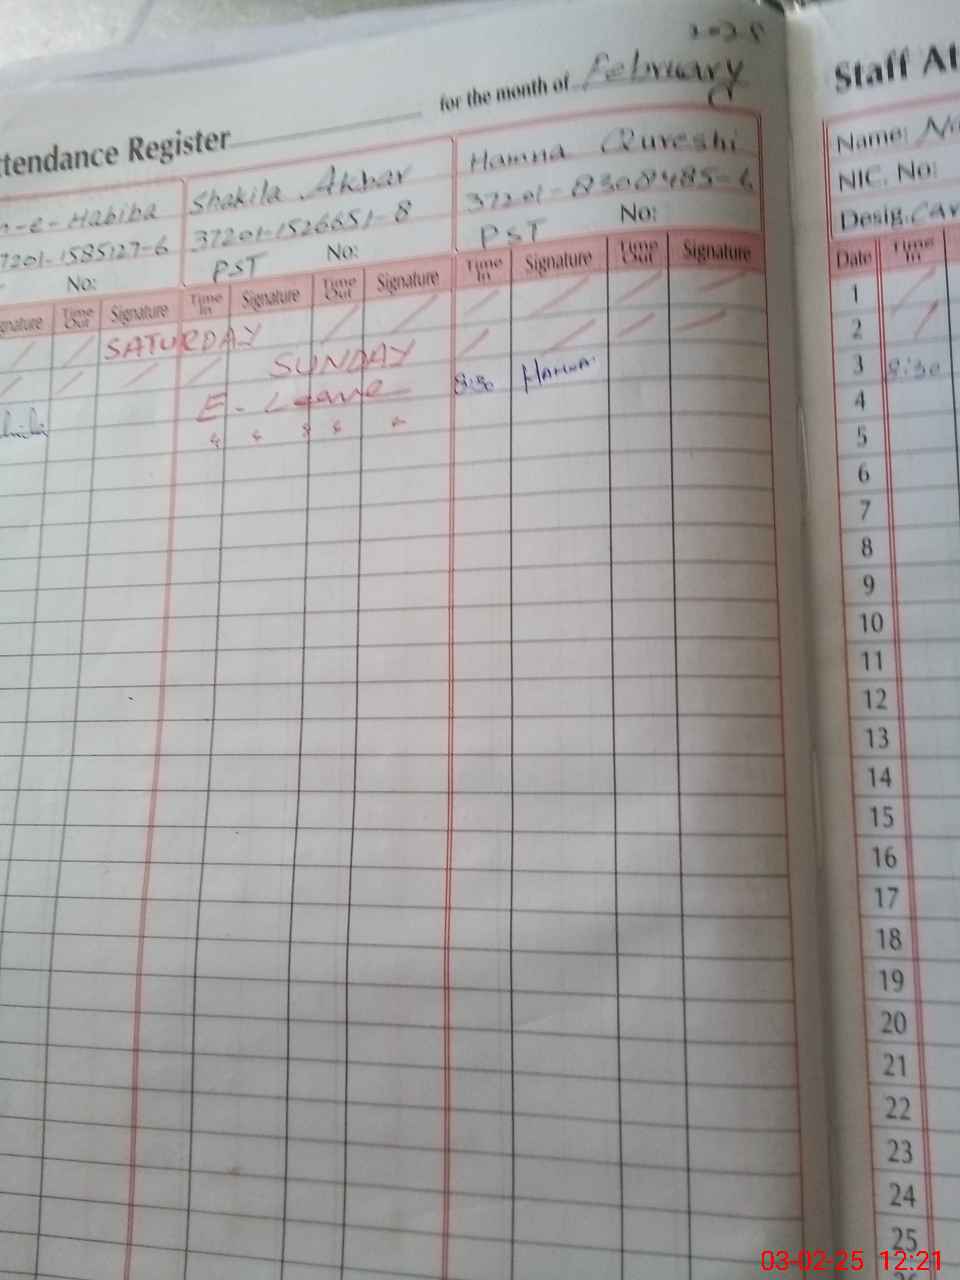 2025
ttendance Register for the month of February
n-e-Habiba Shakila Akbar Hamna Qureshi
7201-1585127-6 37201-1526651-8 37201-8308485-6
No: PST No: PST No:
gnature Time Out Signature Time In Signature Time Out Signature Time In Signature Time Out Signature
SATURDAY
SUNDAY
E-Leave 8:30 Hamna
Staff At
Name:
NIC. No:
Desig.
Date Time In
1
2
3 8:30
4
5
6
7
8
9
10
11
12
13
14
15
16
17
18
19
20
21
22
23
24
25
03-02-25 12:21